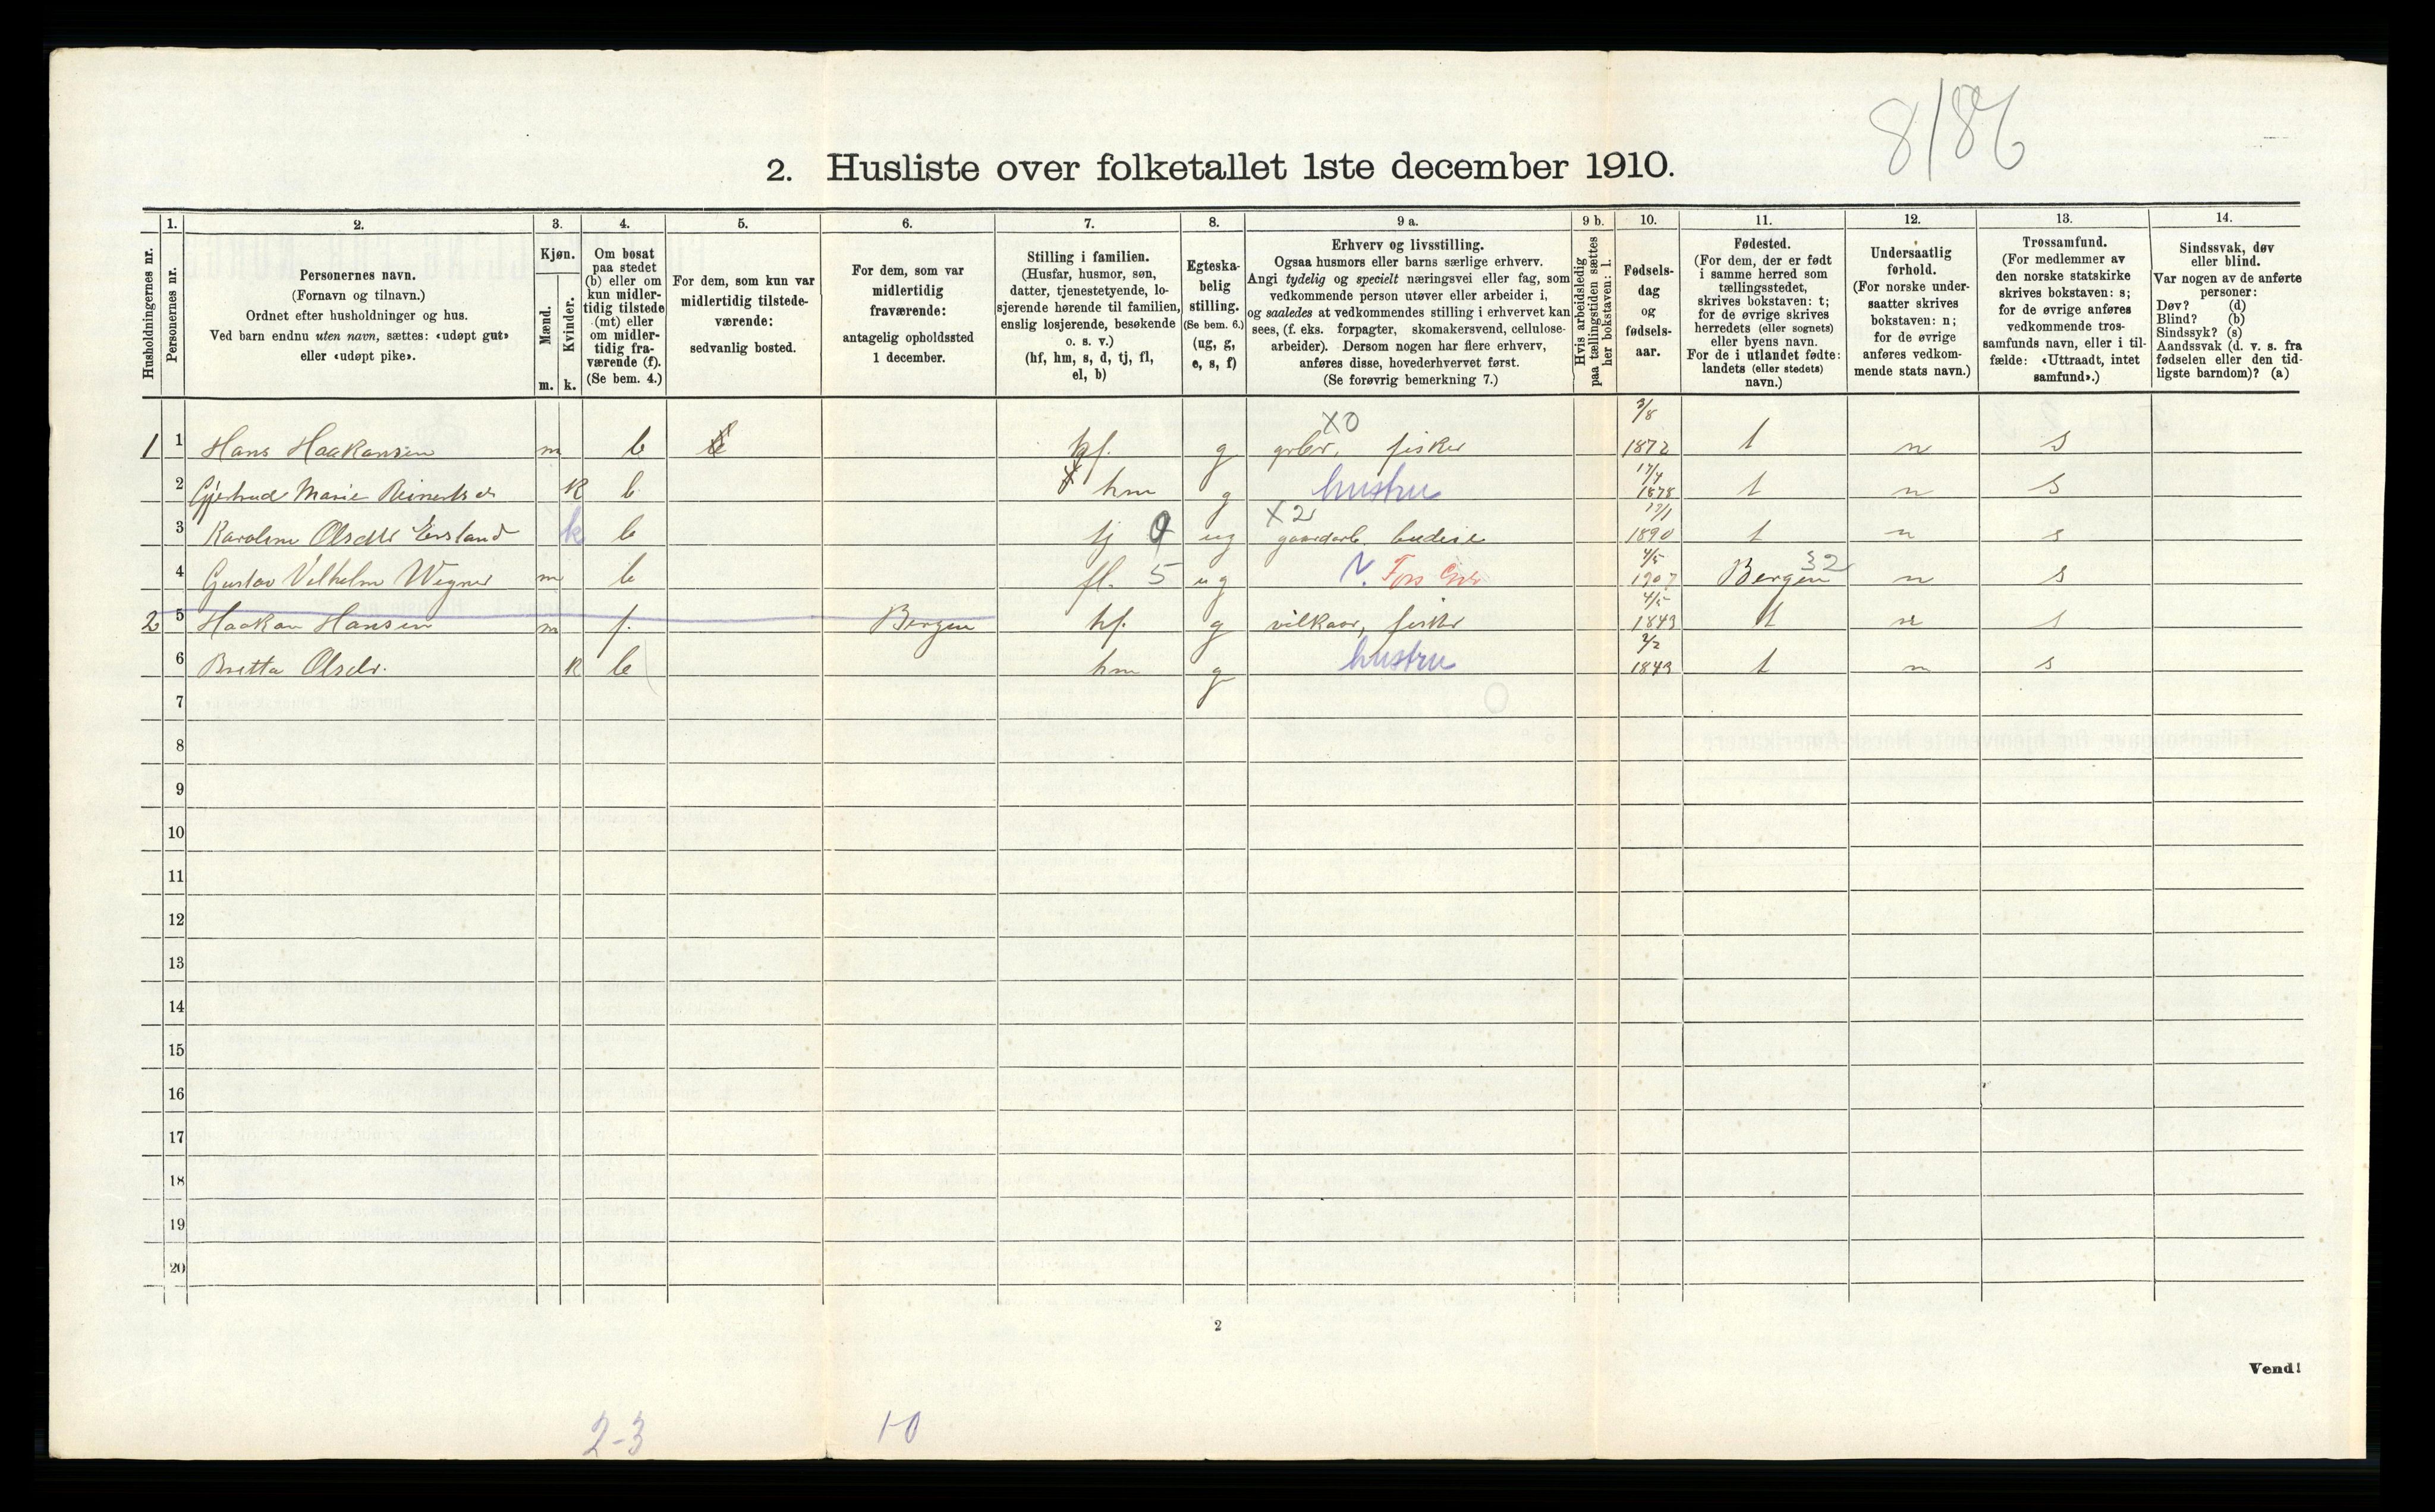 8/86
2. Husliste over folketallet 1ste december 1910.
Husholdningernes nr.
1.
Personernes nr.
2.
Personernes navn.
(Fornavn og tilnavn.)
Ordnet efter husholdninger og hus.
Ved barn endnu uten navn, sættes: «udøpt gut»
eller «udøpt pike».
3.
Kjøn.
Mænd.
Kvinder.
m. k.
4.
Om bosat
paa stedet
(b) eller om
kun midler-
tidig tilstede
(mt) eller
om midler-
tidig fra-
værende (f).
(Se bem. 4.)
5.
For dem, som kun var
midlertidig tilstede-
værende:
sedvanlig bosted.
6.
For dem, som var
midlertidig
fraværende:
antagelig opholdssted
1 december.
7.
Stilling i familien.
(Husfar, husmor, søn,
datter, tjenestetyende, lo-
sjerende hørende til familien,
enslig losjerende, besøkende
o. s. v.)
(hf, hm, s, d, tj, fl,
el, b)
8.
Egteska-
belig
stilling.
(Se bem. 6.)
(ug, g,
e, s, f)
9 a.
Erhverv og livsstilling.
Ogsaa husmors eller barns særlige erhverv.
Angi tydelig og specielt næringsvei eller fag, som
vedkommende person utøver eller arbeider i,
og saaledes at vedkommendes stilling i erhvervet kan
sees, (f. eks. forpagter, skomakersvend, cellulose-
arbeider). Dersom nogen har flere erhverv,
anføres disse, hovederhvervet først.
(Se forøvrig bemerkning 7.)
9 b.
Hvis arbeidsledig
paa tællingstiden sættes
her bokstaven: l.
10.
Fødsels-
dag
og
fødsels-
aar.
11.
Fødested.
(For dem, der er født
i samme herred som
tællingsstedet,
skrives bokstaven: t;
for de øvrige skrives
herredets (eller sognets)
eller byens navn.
For de i utlandet fødte:
landets (eller stedets)
navn.)
12.
Undersaatlig
forhold.
(For norske under-
saatter skrives
bokstaven: n;
for de øvrige
anføres vedkom-
mende stats navn.)
13.
Trossamfund.
(For medlemmer av
den norske statskirke
skrives bokstaven: s;
for de øvrige anføres
vedkommende tros-
samfunds navn, eller i til-
fælde: «Uttraadt, intet
samfund».)
14.
Sindssvak, døv
eller blind.
Var nogen av de anførte
personer:
Døv? (d)
Blind? (b)
Sindssyk? (s)
Aandssvak (d. v. s. fra
fødselen eller den tid-
ligste barndom)? (a)
X0 3/8
1 1 Hans Haakansen m b hf. g grbr, fisker 1872 t n s
17/4
2 Gjertrud Marie Reinertsdr k b hm g hustru 1878 t n s
X2 17/1
3 Karoline Olsdtr Ersland k b tj ug gaardarb budeie 1890 t n s
4/5 32
4 Gustav Vilhelm Wegner m b fl. 5 ug 1907 Bergen n s
4/5
2 5 Haakan Hansen m f. Bergen hf. g vilkaar, fisker 1843 t n s
2/2
6 Britta Olsdr. k b hm g hustru 1843 t n s
7
8
9
10
11
12
13
14
15
16
17
18
19
20
2
Vend!
2-3 1-0